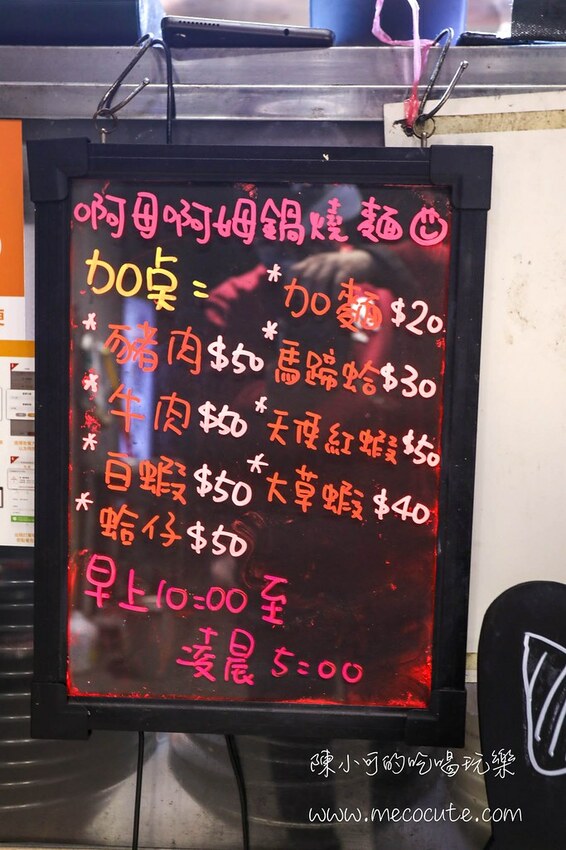 啊母啊姆鍋燒麵
加桌=
*加麵 $20
*豬肉 $50
*馬蹄蛤 $30
*牛肉 $50
*天使紅蝦 $50
*白蝦 $50
*大草蝦 $40
*蛤仔 $50
早上10:00至
凌晨5:00
陳小可的吃喝玩樂
www.mecocute.com